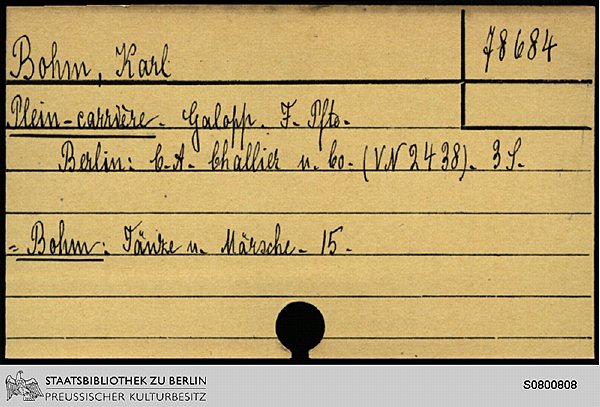 Bohm, Karl
78684
Plein-carrière. Galopp. F. Pfte.
Berlin: C. A. Challier u. Co. (VN 2438). 3 S.
= Bohm: Tänze u. Märsche. 15.
STAATSBIBLIOTHEK ZU BERLIN
PREUSSISCHER KULTURBESITZ
S0800808